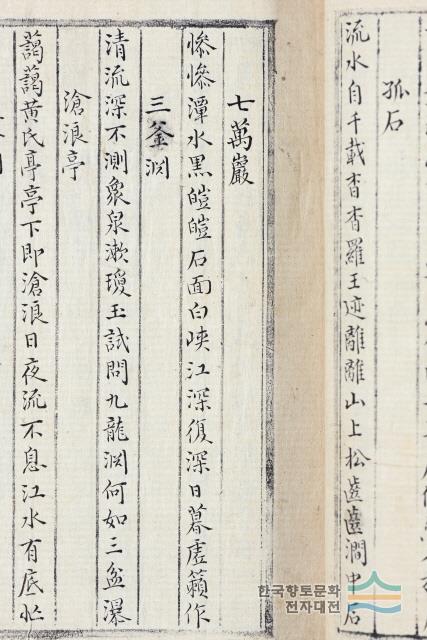 孤石
流水自千載杳杳羅王迹離離山上松齒齒澗中石
七萬巖
慘慘潭水黑皚皚石面白峽江深復深日暮虛籟作
三釜淵
清流深不測衆泉漱瓊玉試問九龍淵何如三盆瀑
滄浪亭
藹藹黃氏亭亭下即滄浪日夜流不息江水有底忙
한국향토문화
전자대전